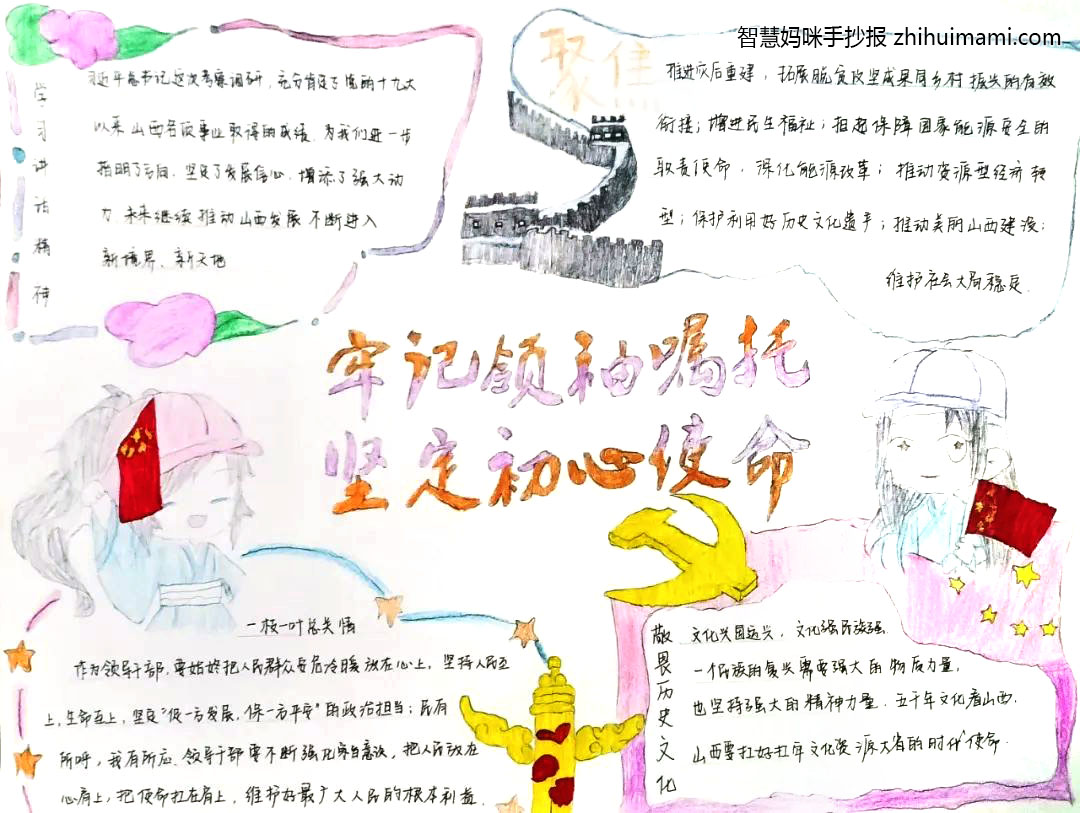 智慧妈咪手抄报 zhihuimami.com
学习讲话精神
习近平总书记这次考察调研，充分肯定了党的十九大
以来山西各项事业取得的成绩，为我们进一步
指明了方向、坚定了发展信心、增添了强大动
力.未来继续推动山西发展不断进入
新境界、新天地
聚焦
推进灾后重建，拓展脱贫攻坚成果同乡村振兴的有效
衔接；增进民生福祉；担起保障国家能源安全的
职责使命，深化能源改革；推动资源型经济转
型；保护利用好历史文化遗产；推动美丽山西建设；
维护社会大局稳定.
牢记领袖嘱托
坚定初心使命
一枝一叶总关情
作为领导干部，要始终把人民群众安危冷暖放在心上，坚持人民至
上，生命至上，坚定“促一方发展，保一方平安”的政治担当；民有
所呼，我有所应.领导干部要不断强化宗旨意识，把人民放在
心肩上，把使命扛在肩上，维护好最广大人民的根本利益.
敬畏历史文化
文化兴国运兴，文化强民族强.
一个民族的复兴需要强大的物质力量，
也坚持强大的精神力量.五千年文化看山西.
山西要扛好扛牢文化资源大省的时代使命.